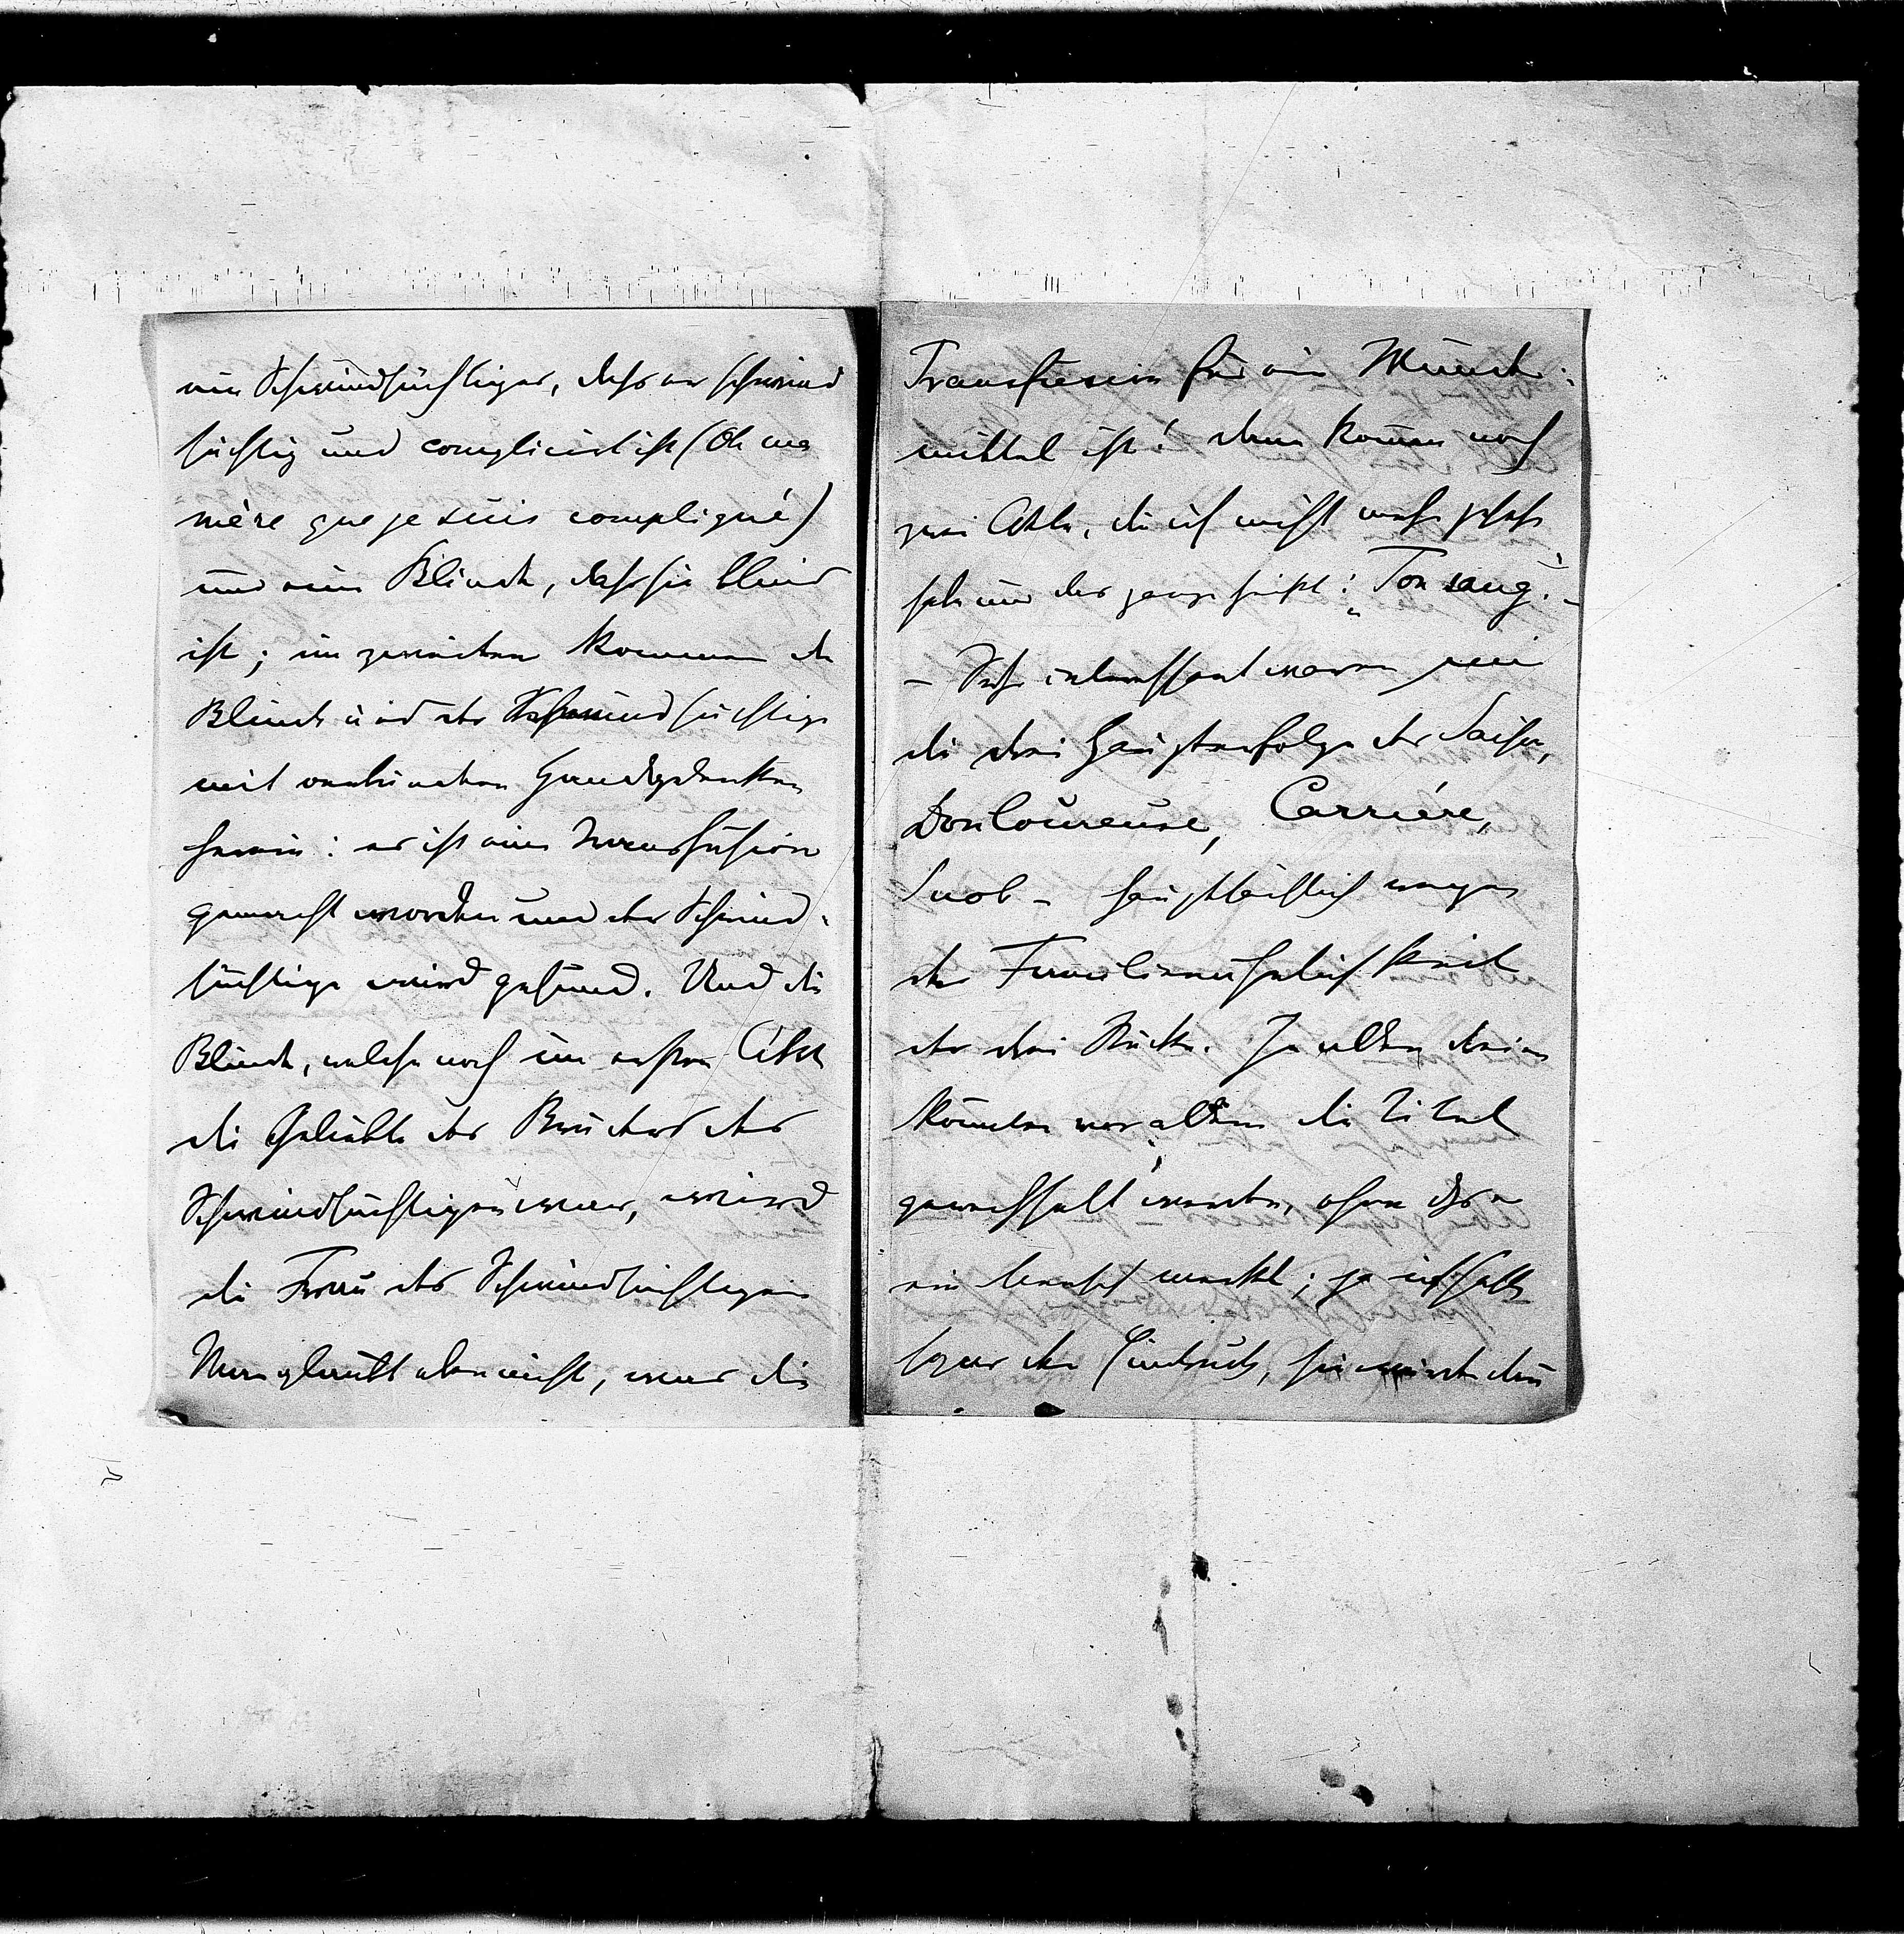 ein Schwindsüchtiger, daß er schwind
süchtig und complicirt ist (Oh ma
mère que je suis compliqué)
und eine Blinde, daß sie blind
ist; im zweiten kommen die
Blinde und der Schwindsüchtige
mit verbundenen Handgelenken
herein: es ist eine Transfusion
gemacht worden und der Schwind-
süchtige wird gesund. Und die
Blinde, welche noch im ersten Akt
die Geliebte des Bruders des
Schwindsüchtigen war, wird
die Frau des Schwindsüchtigen
Man glaubt aber nicht, was die
Transfusion für ein Wunder-
mittel ist! denn kommen noch
zwei Akte, die ich nicht mehr gesehen
habe und das ganze heißt: „Ton sang".
– Sehr interessant waren mir
die drei Haupterfolge der Saison,
Douloureuse, Carrière,
Snob – hauptsächlich wegen
der Familienähnlichkeit
der drei Stücke. In allen dreien
könnten vor allem die Titel
gewechselt werden, ohne daß es
ein Mensch merkt; ja ich hatte
sogar den Eindruck, sie würden